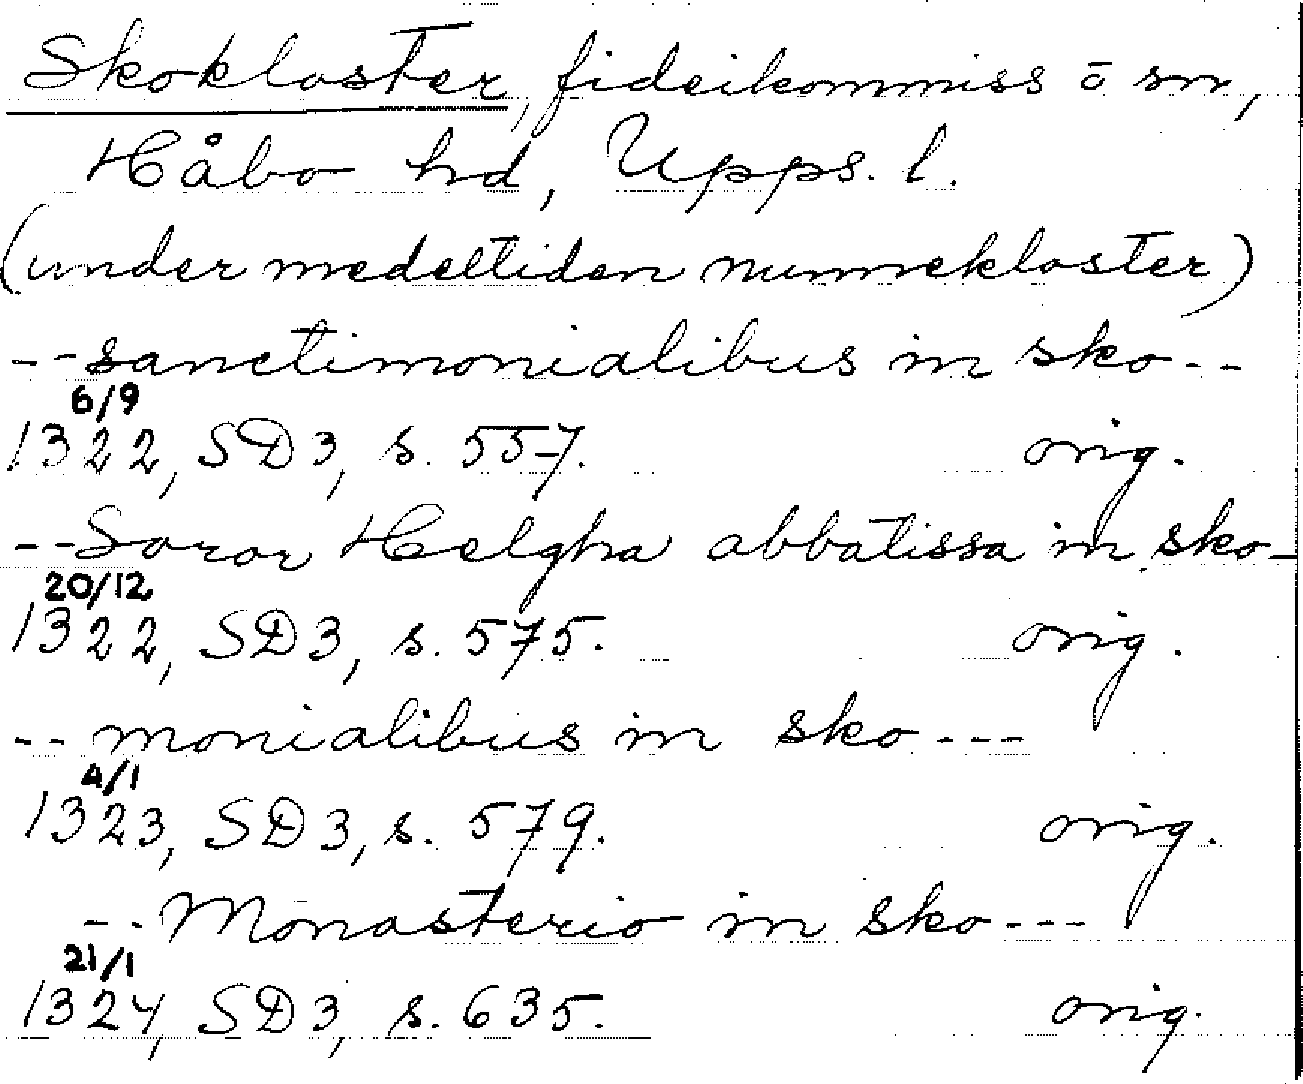 Skokloster, fideikommiss ō sn,
Håbo hd, Upps. l.
(under medeltiden nunnekloster)
--sanctimonialibus in sko--
6/9
1322, SD3, s. 557. orig.
--Soror Helgha abbatissa in sko-
20/12
1322, SD3, s. 575. orig.
-- monialibus in sko---
4/1
1323, SD3, s. 579. orig.
--Monasterio in sko---
21/1
1324, SD3, s. 635. orig.